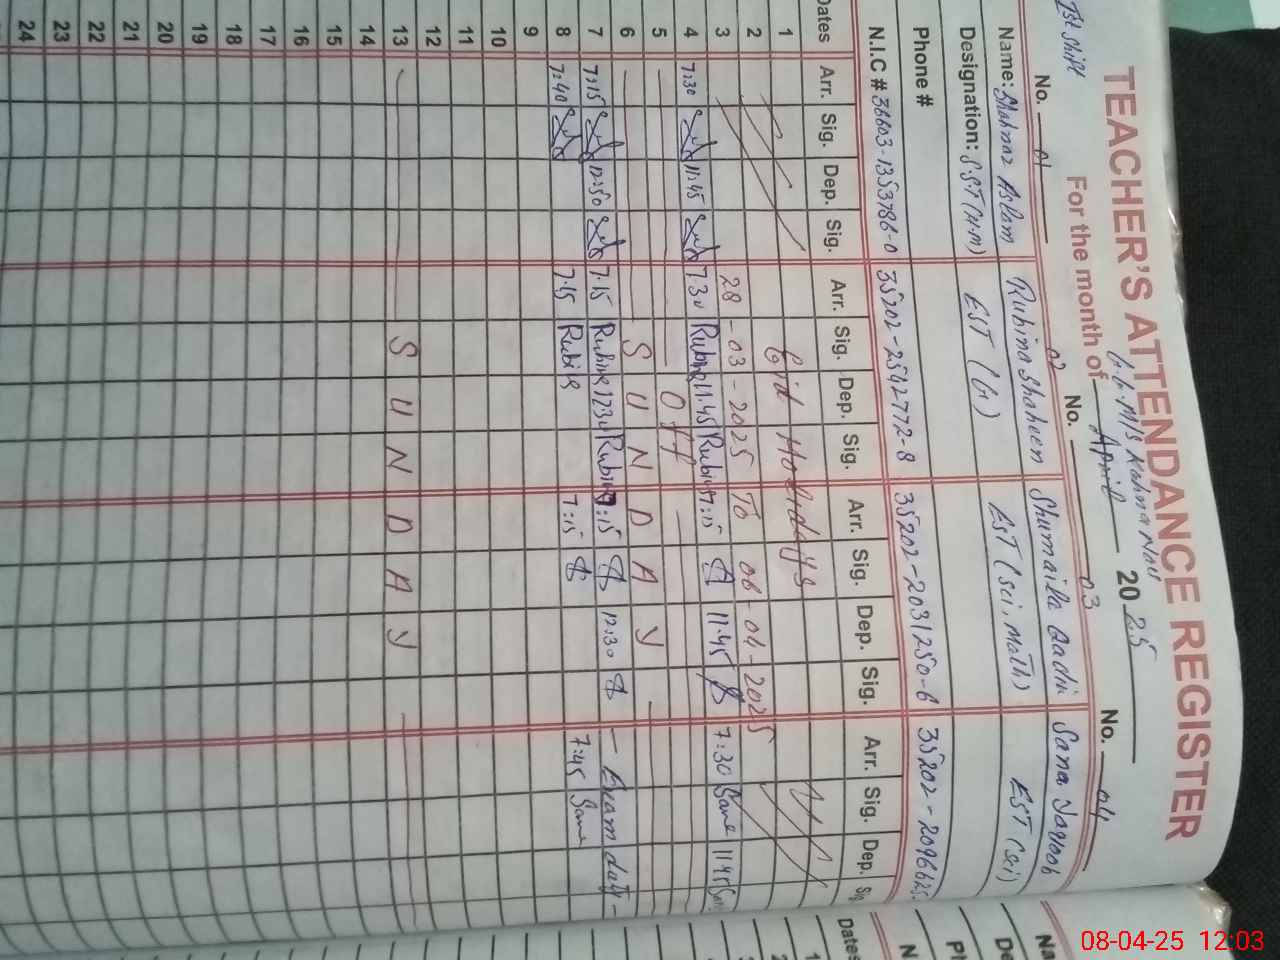 1st Shift
TEACHER'S ATTENDANCE REGISTER
G.G. M/S Kahna Nau
For the month of April 2025
No. 01 02 No. 03 No. 04
Name: Shahnaz Aslam Rubina Shaheen Shumaila Qadri Sana Yaqoob
Designation: S.S.T (H.M) EST (G) EST (Sci, Math) EST (Sci)
Phone #
N.I.C # 36603-1353786-0 35202-2542772-8 35202-2031250-6 35202-2096625-
Dates Arr. Sig. Dep. Sig. Arr. Sig. Dep. Sig. Arr. Sig. Dep. Sig. Arr. Sig. Dep. Sig
1 Eid Holidays
2
3 28-03-2025 To 06-04-2025
4 7:30 11:45 7:30 Rubina 11:45 Rubina 7:15 11:45 7:30 Sana 11:45 Sana
5 — Off —
6 — S U N D A Y —
7 7:15 12:50 7:15 Rubina 1230 Rubina 7:15 12:30 — Exam duty —
8 7:40 7:15 Rubina 7:15 7:45 Sana
9
10
11
12
13 — S U N D A Y —
14
15
16
17
18
19
20
21
22
23
24
Na
De
Ph
N
Dates
1
2
08-04-25 12:03